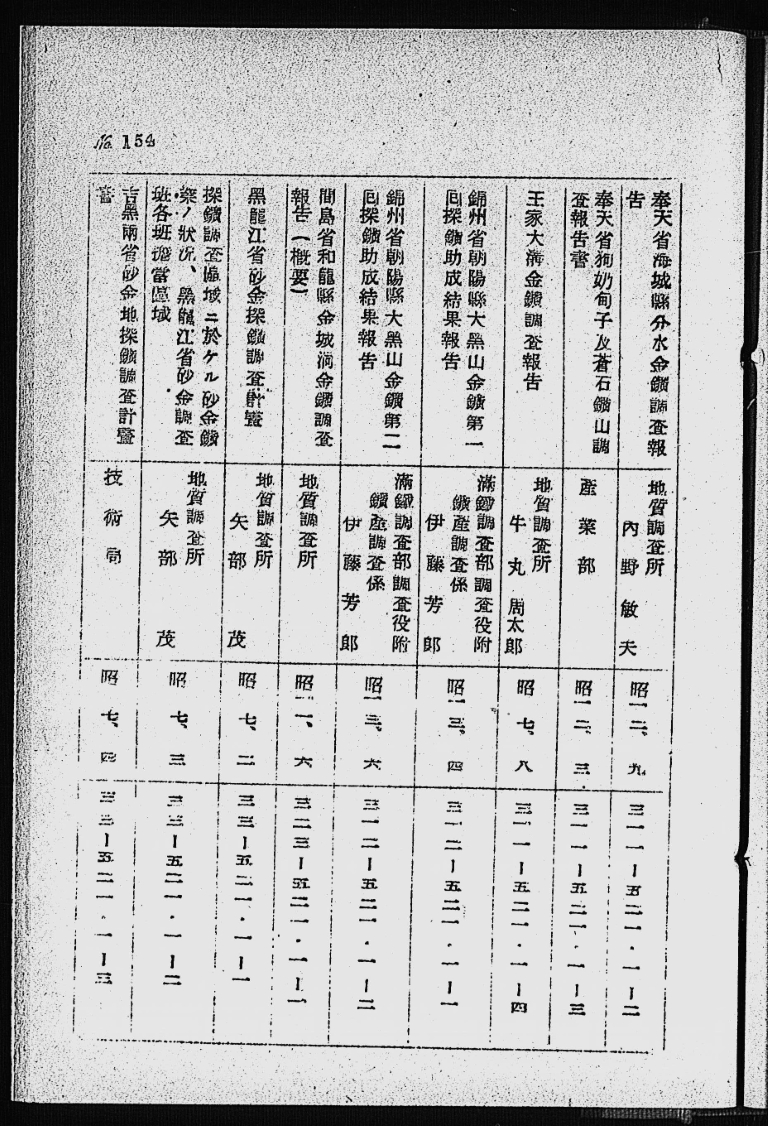 No. 154
奉天省海城縣分水金鑛調査報
告
地質調査所
內野敏夫
昭一二、九
三一一ー五二一・一ー二
奉天省狗奶甸子及蒼石鑛山調
査報告書
產業部
昭一二、三
三一一ー五二一・一ー三
王家大溝金鑛調査報告
地質調査所
牛丸周太郎
昭七、八
三一一ー五二一・一ー四
錦州省朝陽縣大黑山金鑛第一
回探鑛助成結果報告
滿鐵調査部調査役附
鑛產調査係
伊藤芳郎
昭一三、四
三一二ー五二一・一ー一
錦州省朝陽縣大黑山金鑛第二
回探鑛助成結果報告
滿鐵調査部調査役附
鑛產調査係
伊藤芳郎
昭一三、六
三一二ー五二一・一ー二
間島省和龍縣金城洞金鑛調査
報告（槪要）
地質調査所
昭一一、六
三二三ー五二一・一ー一
黑龍江省砂金探鑛調査計畫
地質調査所
矢部茂
昭七、二
三三ー五二一・一ー一
探鑛調査區域ニ於ケル砂金鑛
業ノ狀況、黑龍江省砂金調査
班各班擔當區域
地質調査所
矢部茂
昭七、三
三三ー五二一・一ー二
吉黑兩省砂金地探鑛調査計畫
書
技術局
昭七、四
三三ー五二一・一ー三